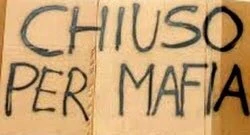 CHIUSO
PER MAFIA